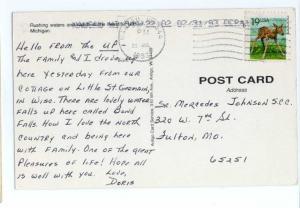 Rushing waters
Michigan.
19 USA
Hello from the UP
The family & I drove up
here yesterday from our
cottage on Little St Germain,
in Wisc. There are lovely water
falls up here called Bond
Falls. How I love the north
country and being here
with family. One of the great
pleasures of life! Hope all
is well with you. Love,
Doris
POST CARD
Address
Sr. Mercedes Johnson S.C.C.
320 W. 7th St.
Fulton, Mo.
65251